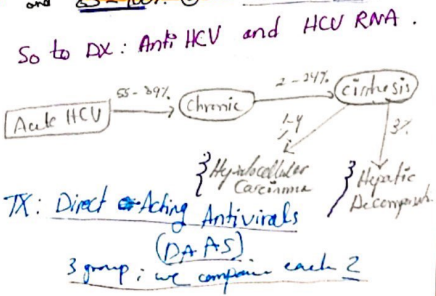 and
So to DX: Anti HCV and HCV RNA.
Acute HCV
55-89%
Chronic
2-24%
cirrhosis
1-4
%
3%
Hepatocellular
Carcinoma
Hepatic
TX: Direct Acting Antivirals
(DAAS)
3 group; we each 2